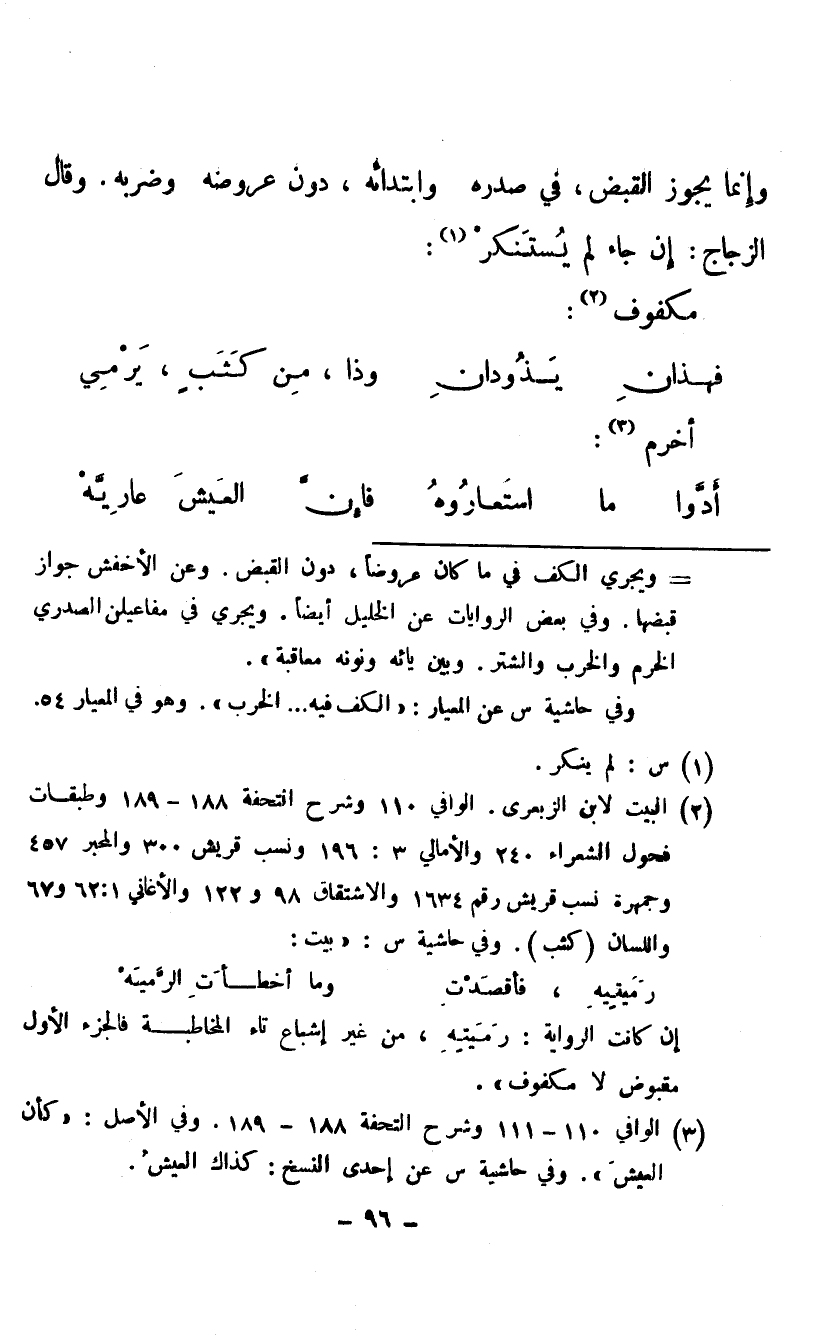 وإنما يجوز القبض، في صدره وابتدائه، دون عروضه وضربه. وقال
الزجاج: إن جاء لم يُستَنكرْ (١):
مكفوف (٢):
فهذانِ يَذُودانِ وذا، مِن كَثَبٍ، يَرْمِي
أخرم (٣):
أَدَّوا ما استَعارُوهُ فإنَّ العَيشَ عارِيَّهْ
= ويجري الكف في ما كان عروضاً، دون القبض. وعن الأخفش جواز
قبضها. وفي بعض الروايات عن الخليل أيضاً. ويجري في مفاعيلن الصدري
الخرم والخرب والشتر. وبين يائه ونونه معاقبة».
وفي حاشية س عن المعيار: «الكف فيه... الخرب». وهو في المعيار ٥٤.
(١) س: لم ينكر.
(٢) البيت لابن الزبعرى. الوافي ١١٠ وشرح التحفة ١٨٨ – ١٨٩ وطبقات
فحول الشعراء ٢٤٠ والأمالي ٣ : ١٩٦ ونسب قريش ٣٠٠ والمحبر ٤٥٧
وجمهرة نسب قريش رقم ١٦٣٤ والاشتقاق ٩٨ و ١٢٢ والأغاني ٦٢:١ و٦٧
واللسان (كثب). وفي حاشية س: «بيت:
رَمَيتِيهِ، فأقصَدْتِ وما أخطأتِ الرَّميَهْ
إن كانت الرواية: رَمَيتِهِ، من غير إشباع تاء المخاطبة فالجزء الأول
مقبوض لا مكفوف».
(٣) الوافي ١١٠ – ١١١ وشرح التحفة ١٨٨ – ١٨٩. وفي الأصل: «كأن
العيشَ». وفي حاشية س عن إحدى النسخ: كذاك العيشُ.
– ٩٦ –